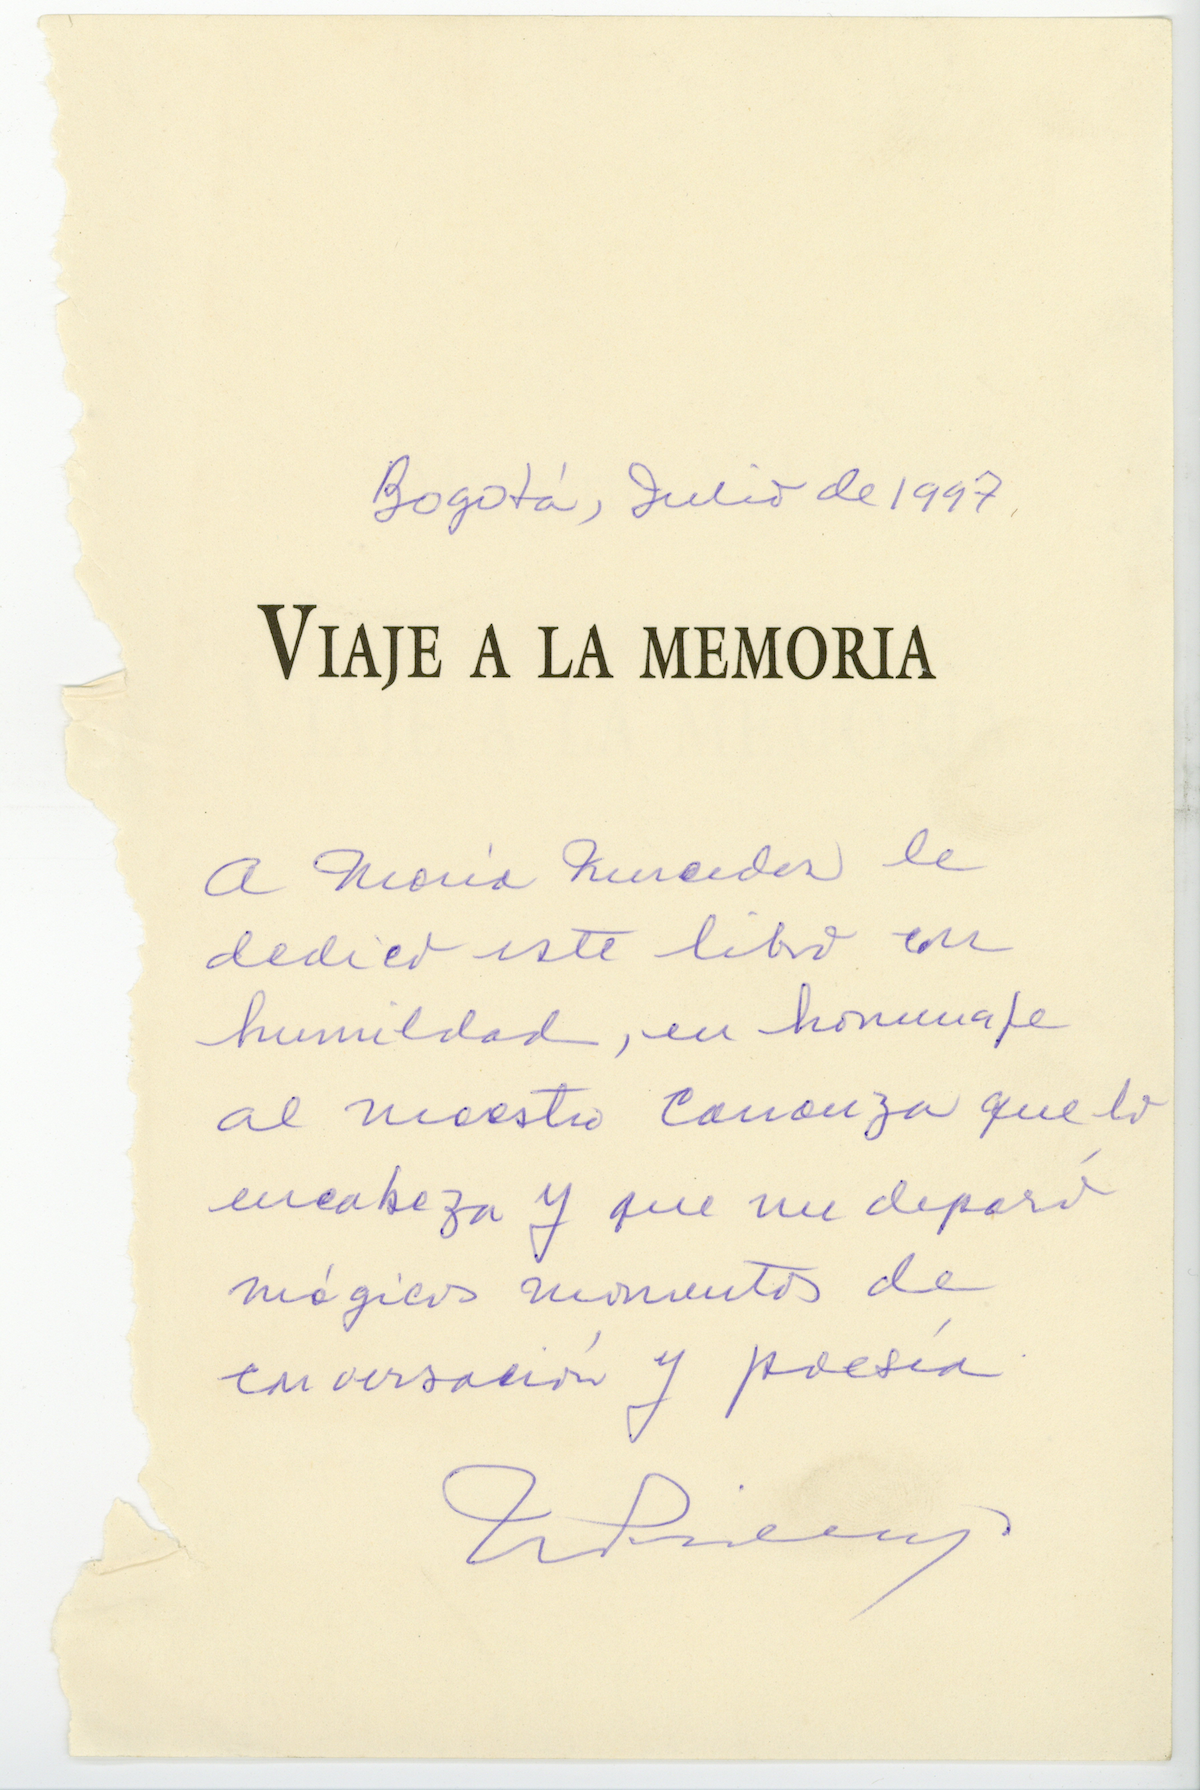 Bogotá, Julio de 1997.
VIAJE A LA MEMORIA
A María Mercedes le
dedico este libro con
humildad, en homenaje
al maestro Carranza que lo
encabeza y que me deparó
mágicos momentos de
conversación y poesía.